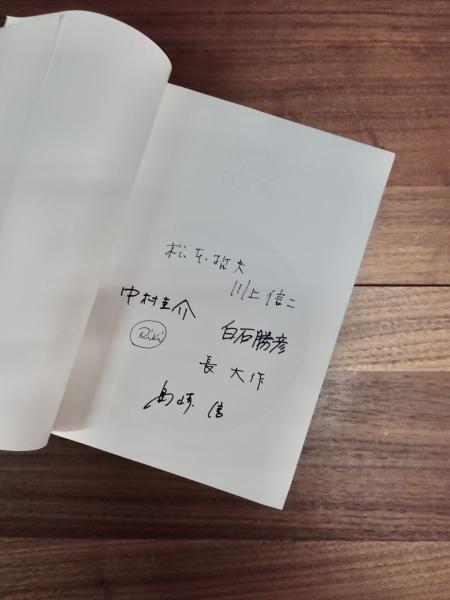 松本哲夫
川上信二
中村圭介
白石勝彦
Riki
長 大作
島崎 信